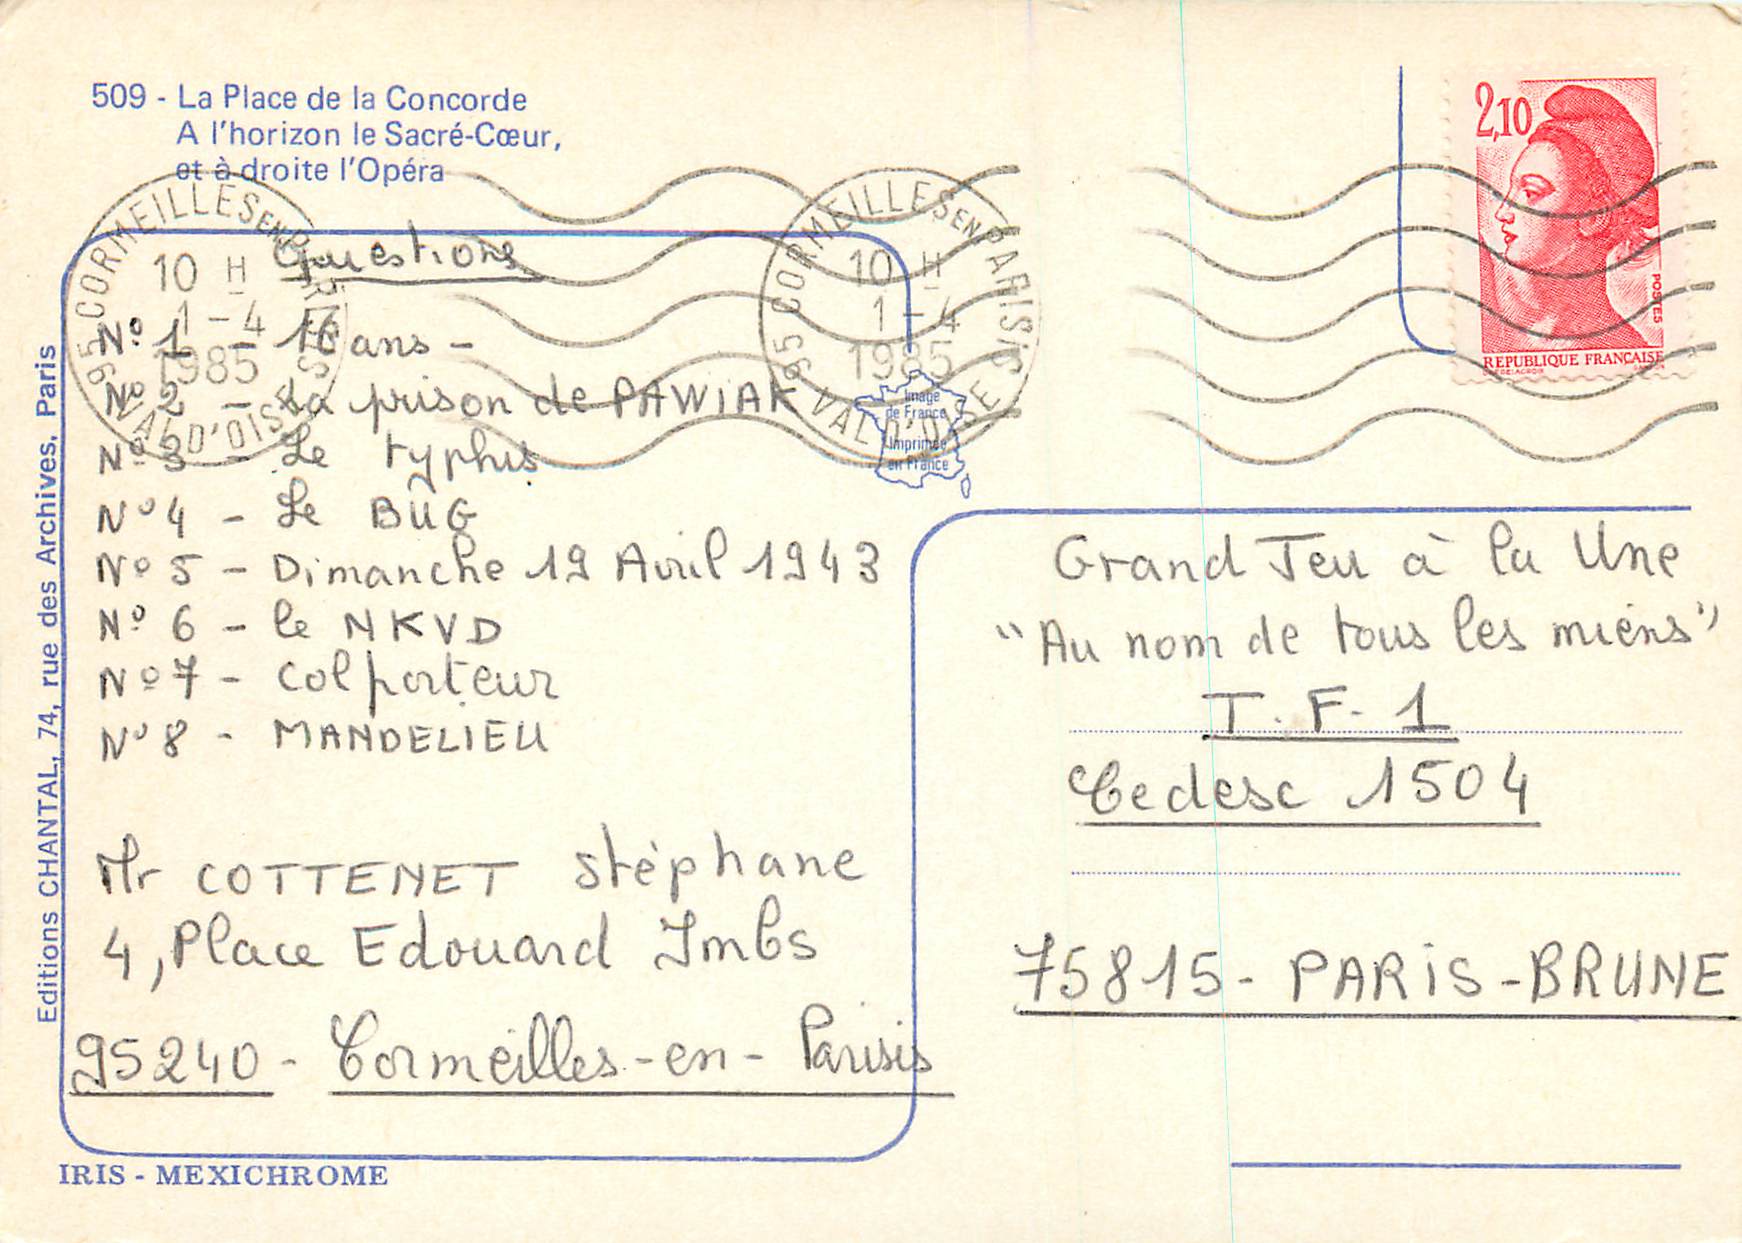 509 - La Place de la Concorde
A l'horizon le Sacré-Cœur,
et à droite l'Opéra
95 CORMEILLES EN PARISIS
10 H
1-4
1985
VAL D'OISE
95 CORMEILLES EN PARISIS
10 H
1-4
1985
VAL D'OISE
2,10
POSTES
REPUBLIQUE FRANÇAISE
Questions
N° 1 - 16 ans -
N° 2 - La prison de PAWIAK
N° 3 - Le typhus
N° 4 - Le BUG
N° 5 - Dimanche 19 Avril 1943
N° 6 - le NKVD
N° 7 - Colporteur
N° 8 - MANDELIEU
Mr COTTENET Stéphane
4, Place Edouard Imbs
95240 - Cormeilles-en-Parisis
Image
de France
Imprimée
en France
Grand Jeu à la Une
"Au nom de tous les miens"
T.F.1
Cedesc 1504
75815 - PARIS-BRUNE
Editions CHANTAL, 74, rue des Archives, Paris
IRIS - MEXICHROME